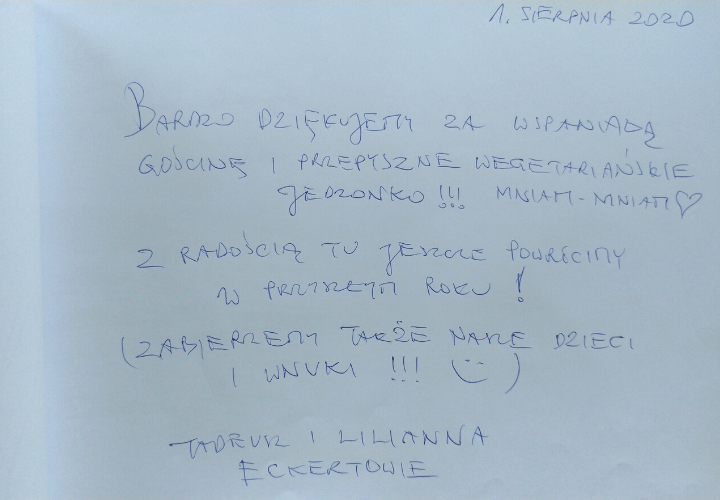 1. SIERPNIA 2020
BARDZO DZIĘKUJEMY ZA WSPANIAŁĄ
GOŚCINĘ I PRZEPYSZNE WEGETARIAŃSKIE
JEDZONKO!!! MNIAM-MNIAM♡
Z RADOŚCIĄ TU JESZCZE POWRÓCIMY
W PRZYSZŁYM ROKU!
(ZABIERZEMY TAKŻE NASZE DZIECI
I WNUKI !!! ☺)
TADEUSZ I LILIANNA
ECKERTOWIE